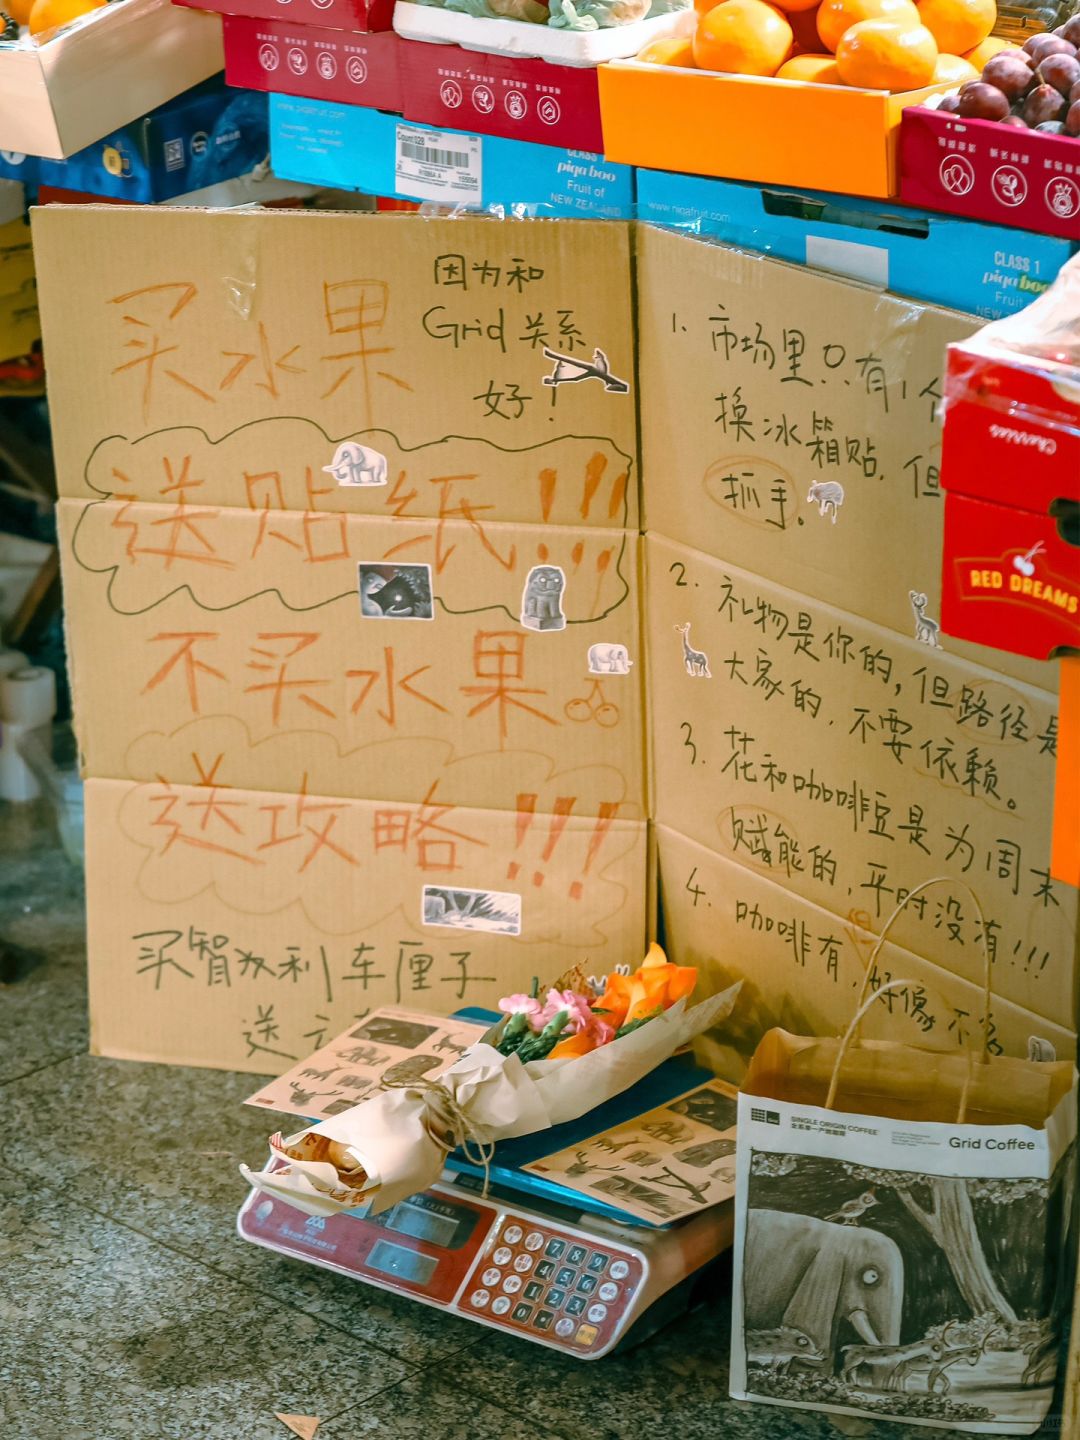 www.piqafruit.com
Count028
CLASS 1
piqa boo
Fruit of
NEW ZEALAND
www.piqafruit.com
CLASS 1
piqaboo
Fruit
NEW
Cherries
RED DREAMS
买水果
因为和
Grid 关系
好！
送贴纸!!!
不买水果
送攻略!!!
买智利车厘子
送
1. 市场里只有1个
换冰箱贴, 但
抓手。
2. 礼物是你的, 但路径是
大家的, 不要依赖。
3. 花和咖啡豆是为周末
赋能的, 平时没有!!!
4. 咖啡有, 但好像不
7 8 9
4 5 6
1 2 3
0
SINGLE ORIGIN COFFEE
Grid Coffee